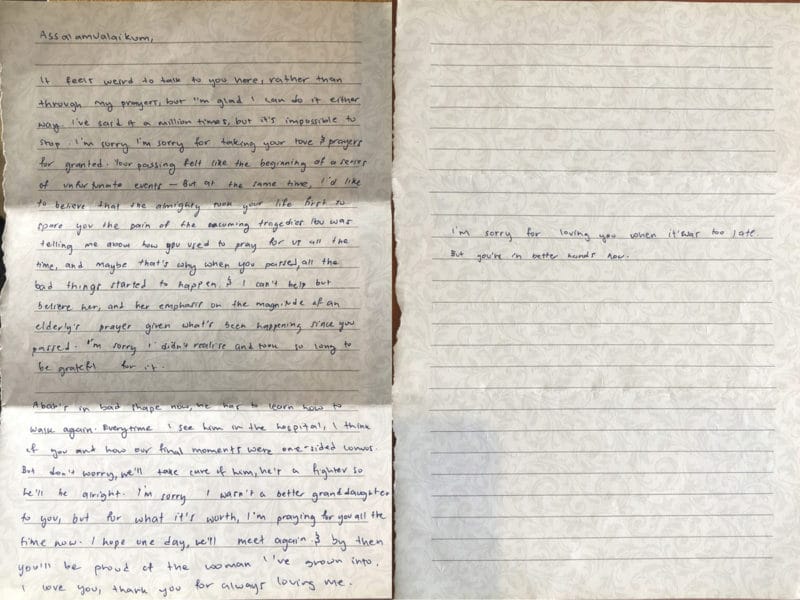 Assalamualaikum,
It feels weird to talk to you here, rather than
through my prayers, but I'm glad I can do it either
way. I've said it a million times, but it's impossible to
stop. I'm sorry I'm sorry for taking your love & prayers
for granted. Your passing felt like the beginning of a series
of unfortunate events — But at the same time, I'd like
to believe that the almighty took your life first to
spare you the pain of the oncoming tragedies was
telling me about how you used to pray for us all the
time, and maybe that's why when you passed, all the
bad things started to happen. & I can't help but
believe her, and her emphasis on the magnitude of an
elderly's prayer given what's been happening since you
passed. I'm sorry I didn't realise and took so long to
be grateful for it.
Abah's in bad shape now, he has to learn how to
walk again. Everytime I see him in the hospital, I think
of you and how our final moments were one-sided convos.
But don't worry, we'll take care of him, he's a fighter so
he'll be alright. I'm sorry I wasn't a better granddaughter
to you, but for what it's worth, I'm praying for you all the
time now. I hope one day, we'll meet again & by then
you'll be proud of the woman I've grown into.
I love you, thank you for always loving me.
I'm sorry for loving you when it was too late.
But you're in better hands now.